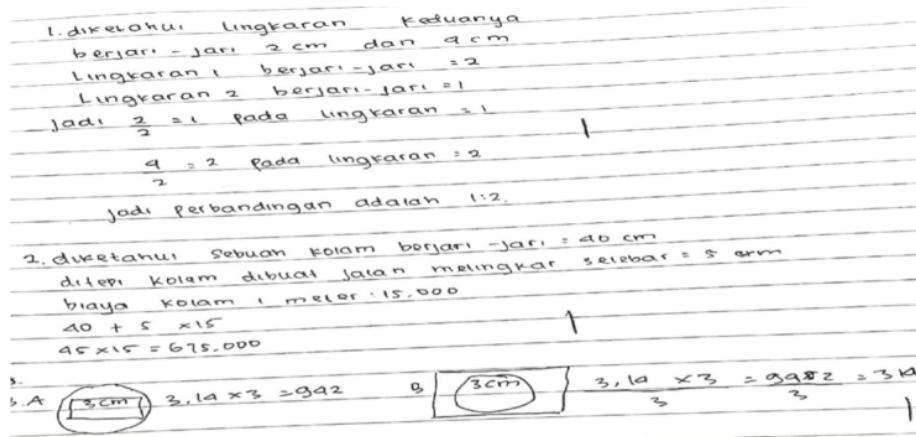 1. diketahui lingkaran keduanya
berjari-jari 2 cm dan 4 cm
Lingkaran 1 berjari-jari = 2
Lingkaran 2 berjari-jari = 1
jadi 2/2 = 1 pada lingkaran = 1
4/2 = 2 pada lingkaran = 2
jadi perbandingan adalah 1:2.
2. diketahui sebuah kolam berjari-jari = 40 cm
ditepi kolam dibuat jalan melingkar selebar = 5 m
biaya kolam 1 meter : 15.000
40 + 5 × 15
45 × 15 = 675.000
3.A 3 cm 3,14 × 3 = 942 B 3 cm 3,14 × 3 / 3 = 942 / 3 = 314